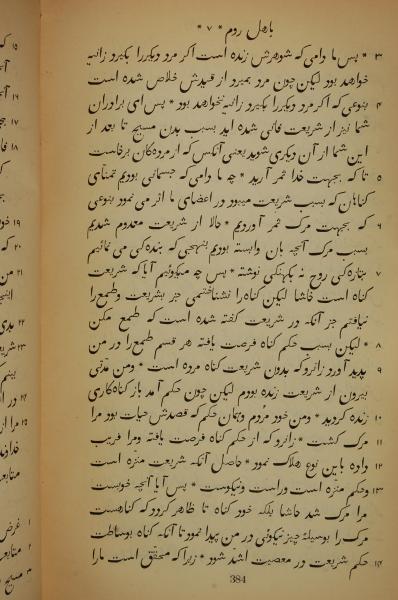 باهل روم * ۷ *
۳ * پس ما دامی که شوهرش زنده است اکر مرد دیکررا بکیرد زانیه
خواهد بود لیکن چون مرد بمیرد از قیدش خلاص شده است
۴ بنوعی که اکر مرد دیکررا بکیرد زانیه نخواهد بود * پس ای برادران
شما نیز از شریعت فانی شده اید بسبب بدن مسیح تا بعد از
این شما از آن دیکری شوید یعنی آنکس که از مرده کان برخاست
۵ تا که بجهت خدا ثمر آرید * چه ما دامی که جسمانی بودیم تمنّای
کناهان که بسبب شریعت میبود در اعضای ما اثر می نمود بنوعی
۶ که بجهت مرک ثمر آوردیم * حالا از شریعت معدوم شدیم
بسبب مرک آنچه بان وابسته بودیم بنهجی که بنده کی می نمائیم
۷ بتازه کی روح نه بکهنکی نوشته * پس چه میکوئیم آیا که شریعت
کناه است حاشا لیکن کناه را نشناختمی جز بشریعت وطمع را
نیافتم جز آنکه در شریعت کفته شده است که طمع مکن
۸ * لیکن بسبب حکم کناه فرصت یافته هر قسم طمع را در من
۹ پدید آورد زانرو که بدون شریعت کناه مرده است * ومن مدّتی
بیرون از شریعت زنده بودم لیکن چون حکم آمد باز کناه کاری
۱۰ زنده کردید * ومن خود مردم وهمان حکم که قصدش حیات بود مرا
۱۱ مرک کشت * زانرو که از حکم کناه فرصت یافته ومرا فریب
۱۲ داده باین نوع هلاک نمود * حاصل آنکه شریعت منزّه است
۱۳ وحکم منزّه است وراست ونیکوست * پس آیا آنچه خوبست
مرا مرک شد حاشا بلکه خود کناه تا ظاهر کردد که کناهست
مرک را بوسیلهٔ چیز نیکوئی در من پیدا نمود تا آنکه کناه بوساطت
۱۴ حکم شریعت در معصیت اشدّ شود * زیرا که محقّق است مارا
384